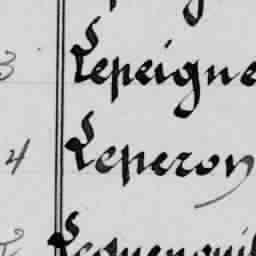 3 Lepeigne
4 Leperon